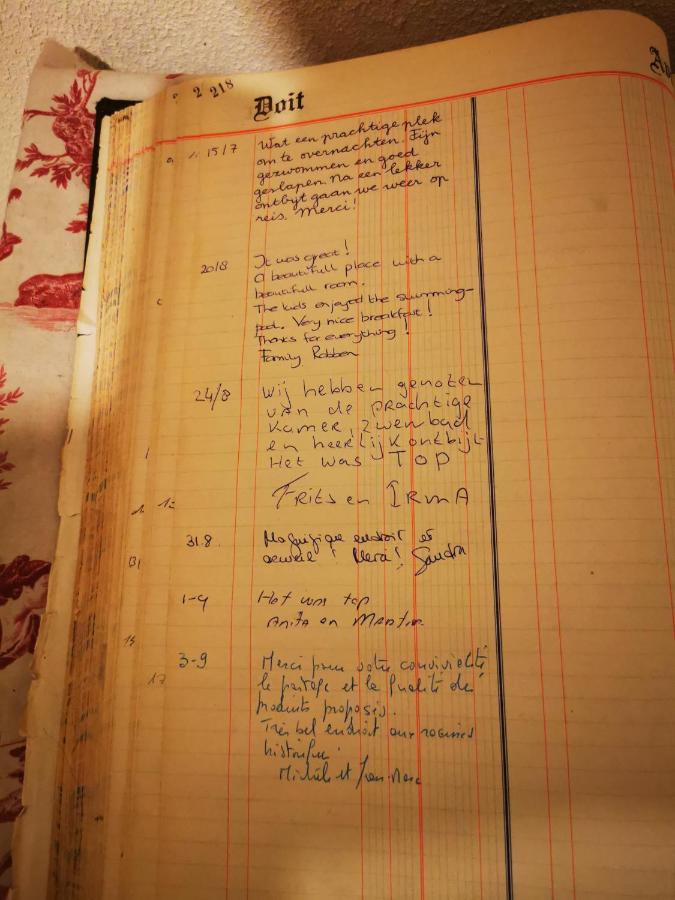 2 218
Doit
15/7 Wat een prachtige plek
om te overnachten. Fijn
gezwommen en goed
geslapen. Na een lekker
ontbijt gaan we weer op
reis. Merci!
20/8 It was great!
A beautifull place with a
beautifull room.
The kids enjoyed the swimming-
pool. Very nice breakfast!
Thanks for everything!
Family Robben
24/8 Wij hebben genoten
van de prachtige
Kamer, zwembad
en heerlijk ontbijt
Het was TOP
Frits en Irma
31.8. Magnifique endroit et
acueil! Merci! Sandra
1-9 Het was top
Anita en Martin
3-9 Merci pour votre convivialité
le partage et la qualité des
produits proposés.
Très bel endroit aux racines
historique.
Michèle et Jean-Marc